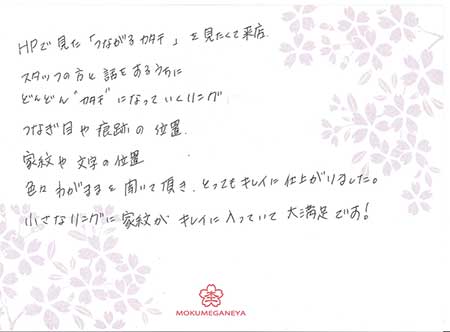 HPで見た「つながるカタチ」を見たくて来店.
スタッフの方と話をするうちに
どんどん"カタチ"になっていくリング
つなぎ目や痕跡の位置.
家紋や文字の位置
色々わがままを聞いて頂き、とってもキレイに仕上がりました。
小さなリングに家紋がキレイに入っていて大満足です!
MOKUMEGANEYA